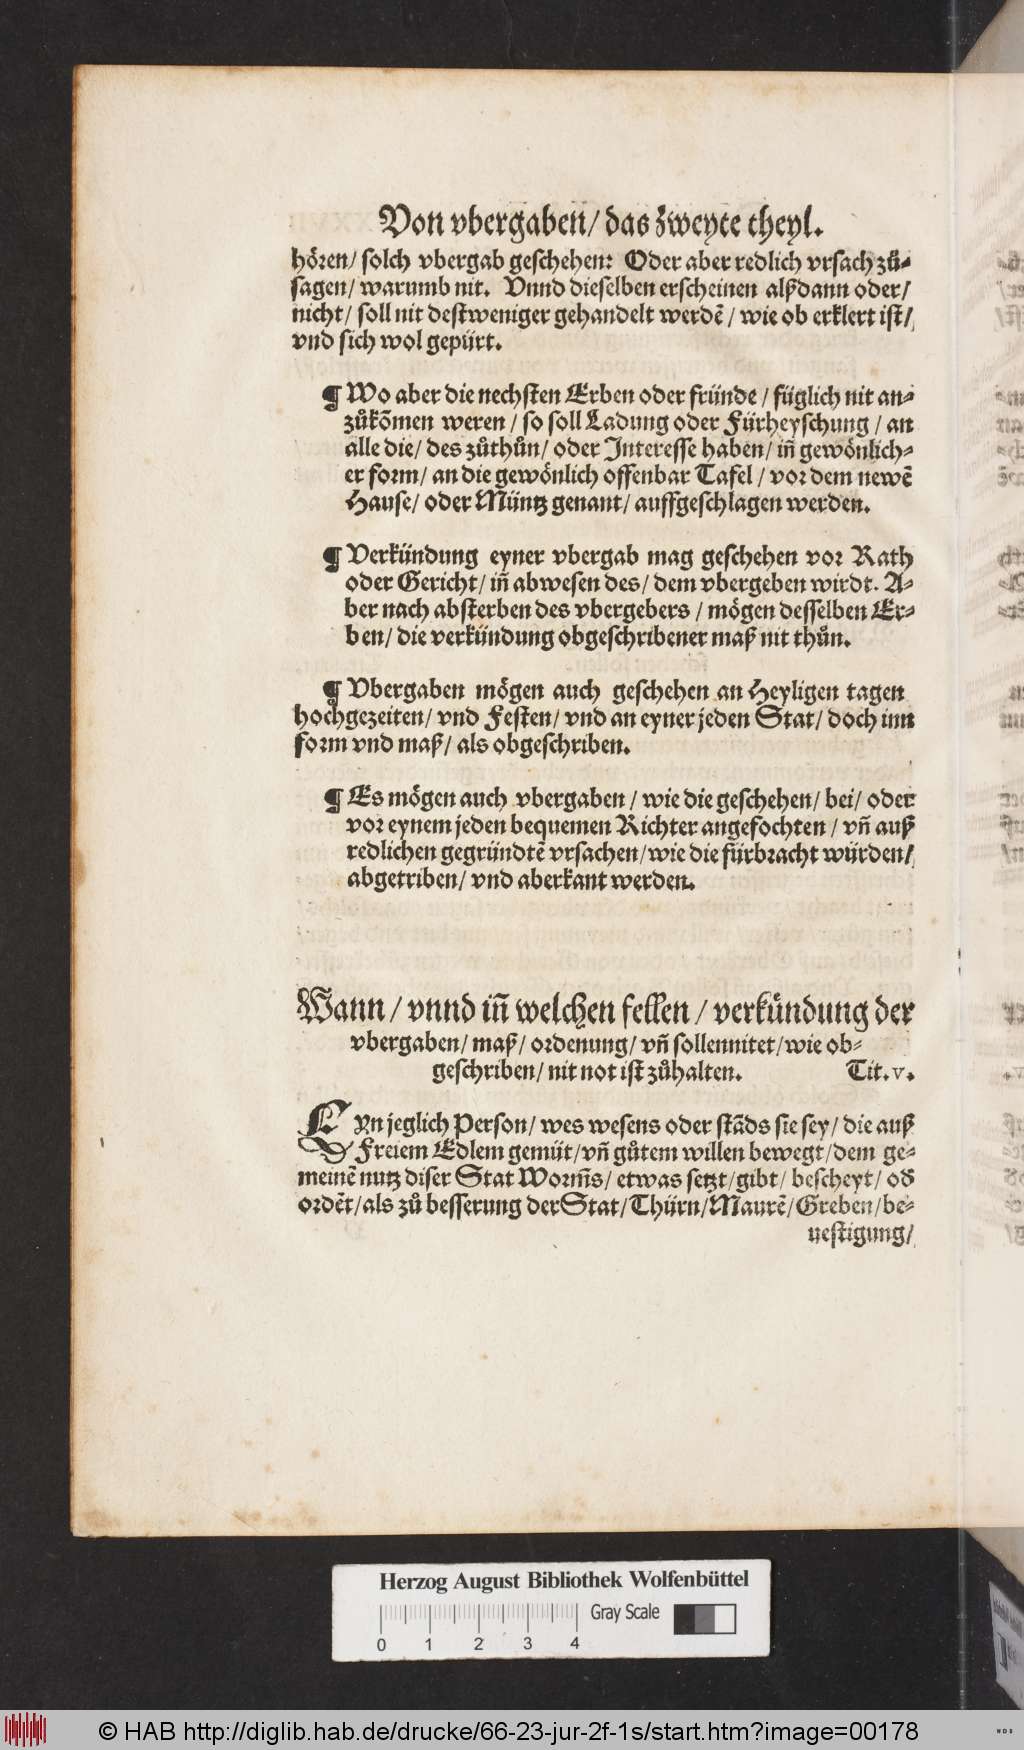 Von vbergaben/ das zweyte theyl.
hören/ solch vbergab geschehen: Oder aber redlich vrsach zů-
sagen/ warumb nit. Vnnd dieselben erscheinen alßdann oder/
nicht/ soll nit destweniger gehandelt werdẽ/ wie ob erklert ist/
vnd sich wol gepürt.
¶ Wo aber die nechsten Erben oder fründe/ füglich nit an-
zůkõmen weren/ so soll Ladung oder Fürheyschung/ an
alle die/ des zůthůn/ oder Interesse haben/ iñ gewönlich-
er form/ an die gewönlich offenbar Tafel/ vor dem newẽ
Hause/ oder Müntz genant/ auffgeschlagen werden.
¶ Verkündung eyner vbergab mag geschehen vor Rath
oder Gericht/ iñ abwesen des/ dem vbergeben wirdt. A-
ber nach absterben des vbergebers/ mögen desselben Er-
ben/ die verkündung obgeschribener maß nit thůn.
¶ Vbergaben mögen auch geschehen an Heyligen tagen
hochgezeiten/ vnd Festen/ vnd an eyner jeden Stat/ doch inn
form vnd maß/ als obgeschriben.
¶ Es mögen auch vbergaben/ wie die geschehen/ bei/ oder
vor eynem jeden bequemen Richter angefochten/ vñ auß
redlichen gegründtẽ vrsachen/ wie die fürbracht würden/
abgetriben/ vnd aberkant werden.
Wann/ vnnd iñ welchen fellen/ verkündung der
vbergaben/ maß/ ordenung/ vñ sollennitet/ wie ob-
geschriben/ nit not ist zůhalten. Tit. v.
EYn jeglich Person/ wes wesens oder stãds sie sey/ die auß
Freiem Edlem gemüt/ vñ gůtem willen bewegt/ dem ge-
meinẽ nutz diser Stat Worm̃s/ etwas setzt/ gibt/ bescheyt/ od̾
ordẽt/ als zů besserung der Stat/ Thürn/ Maurẽ/ Greben/ be-
uestigung/
Herzog August Bibliothek Wolfenbüttel
Gray Scale
0 1 2 3 4
© HAB http://diglib.hab.de/drucke/66-23-jur-2f-1s/start.htm?image=00178